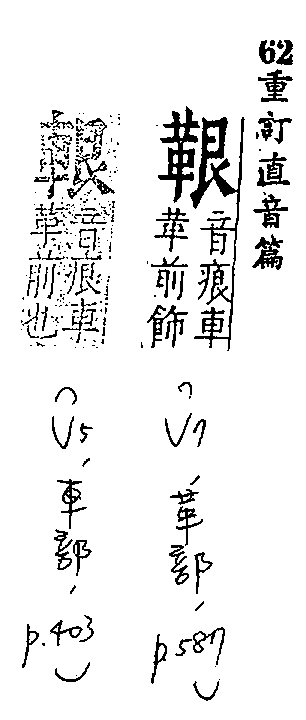 62重訂直音篇
鞎
音痕車
革前飾
(V7、革部、p.587)
音痕車
革前也
(V5、車部、p.403)